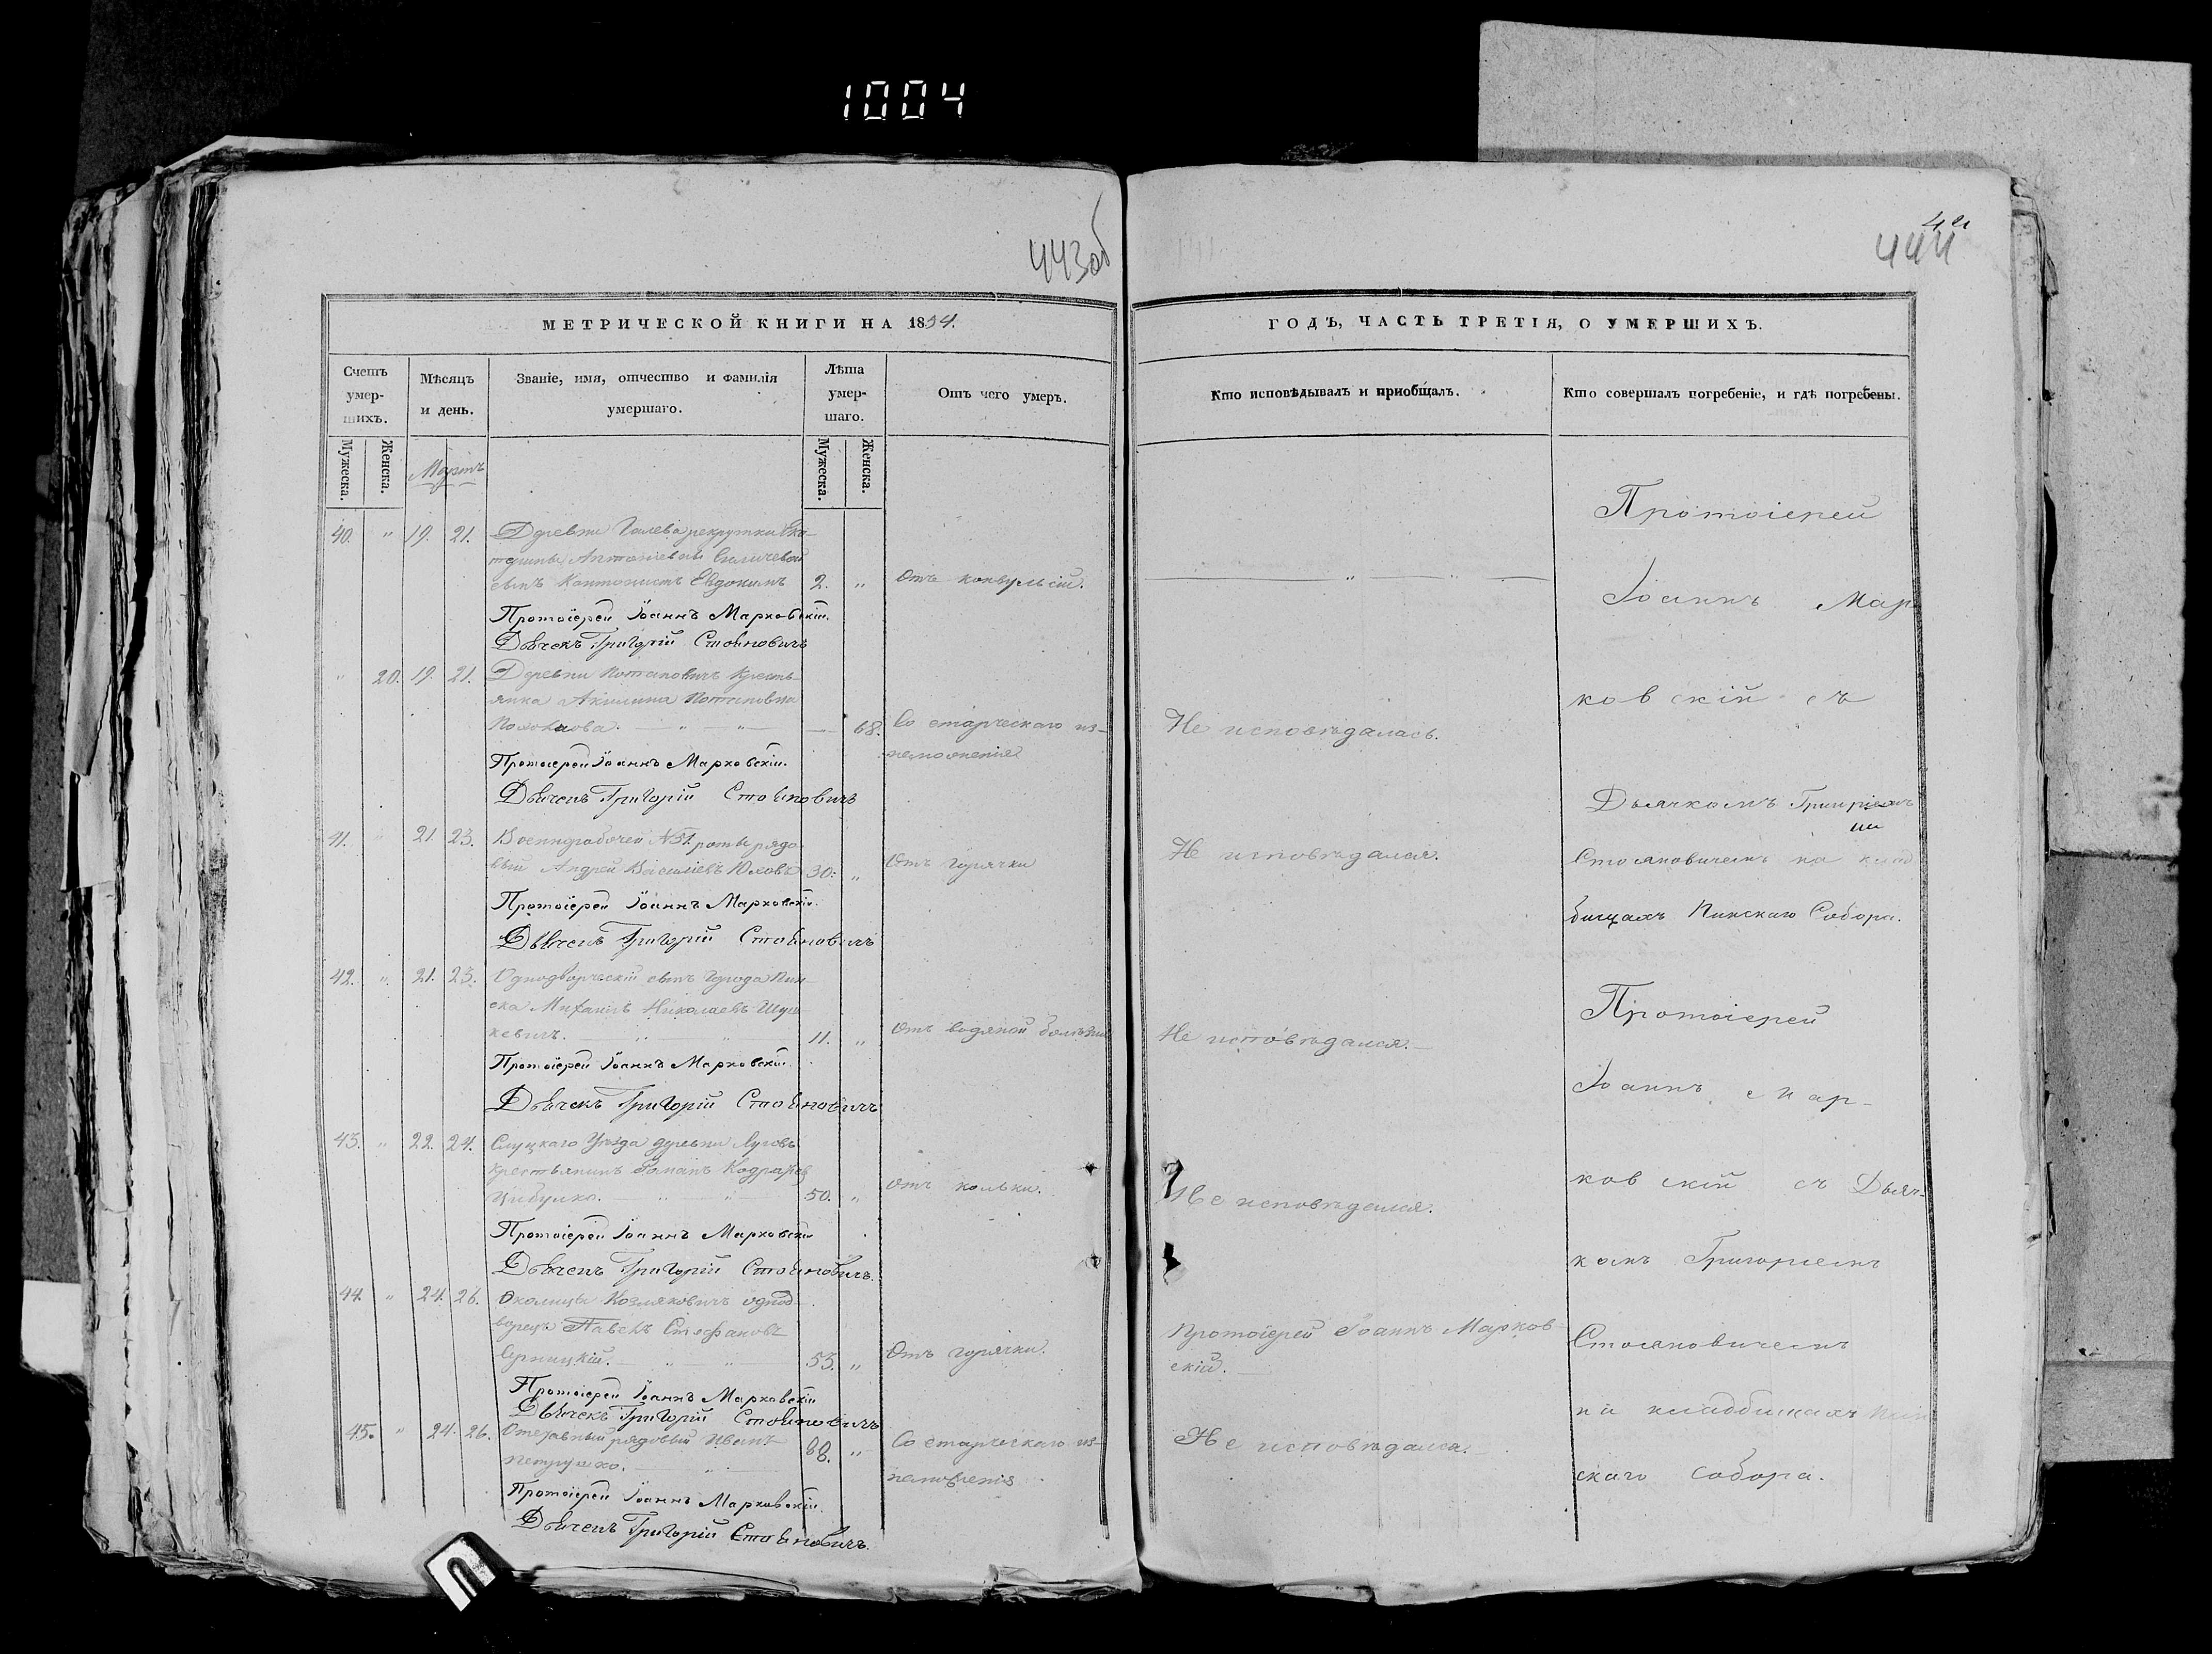 1004
443об
444
МЕТРИЧЕСКОЙ КНИГИ НА 1854.
ГОДЪ, ЧАСТЬ ТРЕТІЯ, О УМЕРШИХЪ.
Счетъ умер-шихъ.
Мѣсяцъ и день.
Званіе, имя, отчество и фамилія умершаго.
Лѣта умер-шаго.
Отъ чего умеръ.
Кто исповѣдывалъ и пріобщалъ.
Кто совершалъ погребеніе, и гдѣ погребены.
Мужеска.
Женска.
Мартъ
Мужеска.
Женска.
40. " 19. 21. Деревни Галева рекрутки Ека-
терины Антоніевой
сынъ Кантонистъ Евдокимъ 2. " Отъ конвульсіи.
Протоіерей Іоаннъ Марковскій.
Дьячекъ Григорій Стояновичъ
" 20. 19. 21. Деревни Потаповичъ Кресть-
янка Акилина Потаповна
68. Со старческаго из-
неможенія
Не исповѣдалась.
Протоіерей Іоаннъ Марковскій.
Дьячекъ Григорій Стояновичъ
41. " 21. 23. Военнорабочей № 51 роты рядо-
вый Андрей Васильевъ 30. " Отъ горячки
Не исповѣдался.
Протоіерей Іоаннъ Марковскій.
Дьячекъ Григорій Стояновичъ
42. " 21. 23. Однодворческій сынъ города Пин-
ска Михаилъ Николаевъ
кевичъ. 11. " Отъ водяной болѣзни
Не исповѣдался.
Протоіерей Іоаннъ Марковскій.
Дьячекъ Григорій Стояновичъ
43. " 22. 24. Слуцкаго Уѣзда деревни
Крестьянинъ Романъ
Цибулко. 50. " Отъ кольки.
Не исповѣдался.
Протоіерей Іоаннъ Марковскій
Дьячекъ Григорій Стояновичъ.
44 " 24. 26. Околицы Козляковичъ однод-
ворецъ Павелъ Стефановъ
Серницкій. 55. " Отъ горячки.
Протоіерей Іоаннъ Марков-
скій.
Протоіерей Іоаннъ Марковскій
Дьячекъ Григорій Стояновичъ
45. " 24. 26. Отставный рядовый Иванъ
Петрушко. 88. " Со старческаго из-
неможенія
Не исповѣдался.
Протоіерей Іоаннъ Марковскій.
Дьячекъ Григорій Стояновичъ.
Протоіерей
Іоаннъ Мар
ковскій съ
Дьячкомъ Григоріемъ
Стояновичемъ на клад
бищахъ Пинскаго Собора.
Протоіерей
Іоаннъ Мар-
ковскій съ Дьяч-
комъ Григоріемъ
Стояновичемъ
на кладбищахъ Пин
скаго Собора.